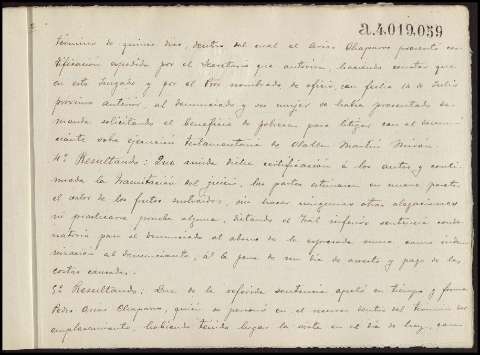 a.4.019.059
término de quince dias, dentro del cual el Arias Chaparro presentó cer-
tificación expedida por el Secretario que autoriza, haciendo constar que
en este Juzgado y por el nombrado de oficio, con fecha 14 de Julio
próximo anterior, el denunciado y su mujer se había presentado de-
manda solicitando el beneficio de pobreza para litigar con el denun-
ciante sobre ejecución testamentaria de Martín
4º Resultando: Que unida dicha certificación á los autos y conti-
nuada la tramitación del juicio, las partes estimaron en nueve pesetas
el valor de los frutos sustraidos, sin hacer ningunas otras alegaciones
ni practicarse prueba alguna, dictando el Tral inferior sentencia conde-
natoria para el denunciado al abono de la expresada suma como indem-
nización al denunciante, á la pena de un dia de arresto y pago de las
costas causadas.
5º Resultando: Que de la referida sentencia apeló en tiempo y forma
Pedro Arias Chaparro, quién se personó en el recurso dentro del término del
emplazamiento, habiendo tenido lugar la vista en el dia de hoy, con